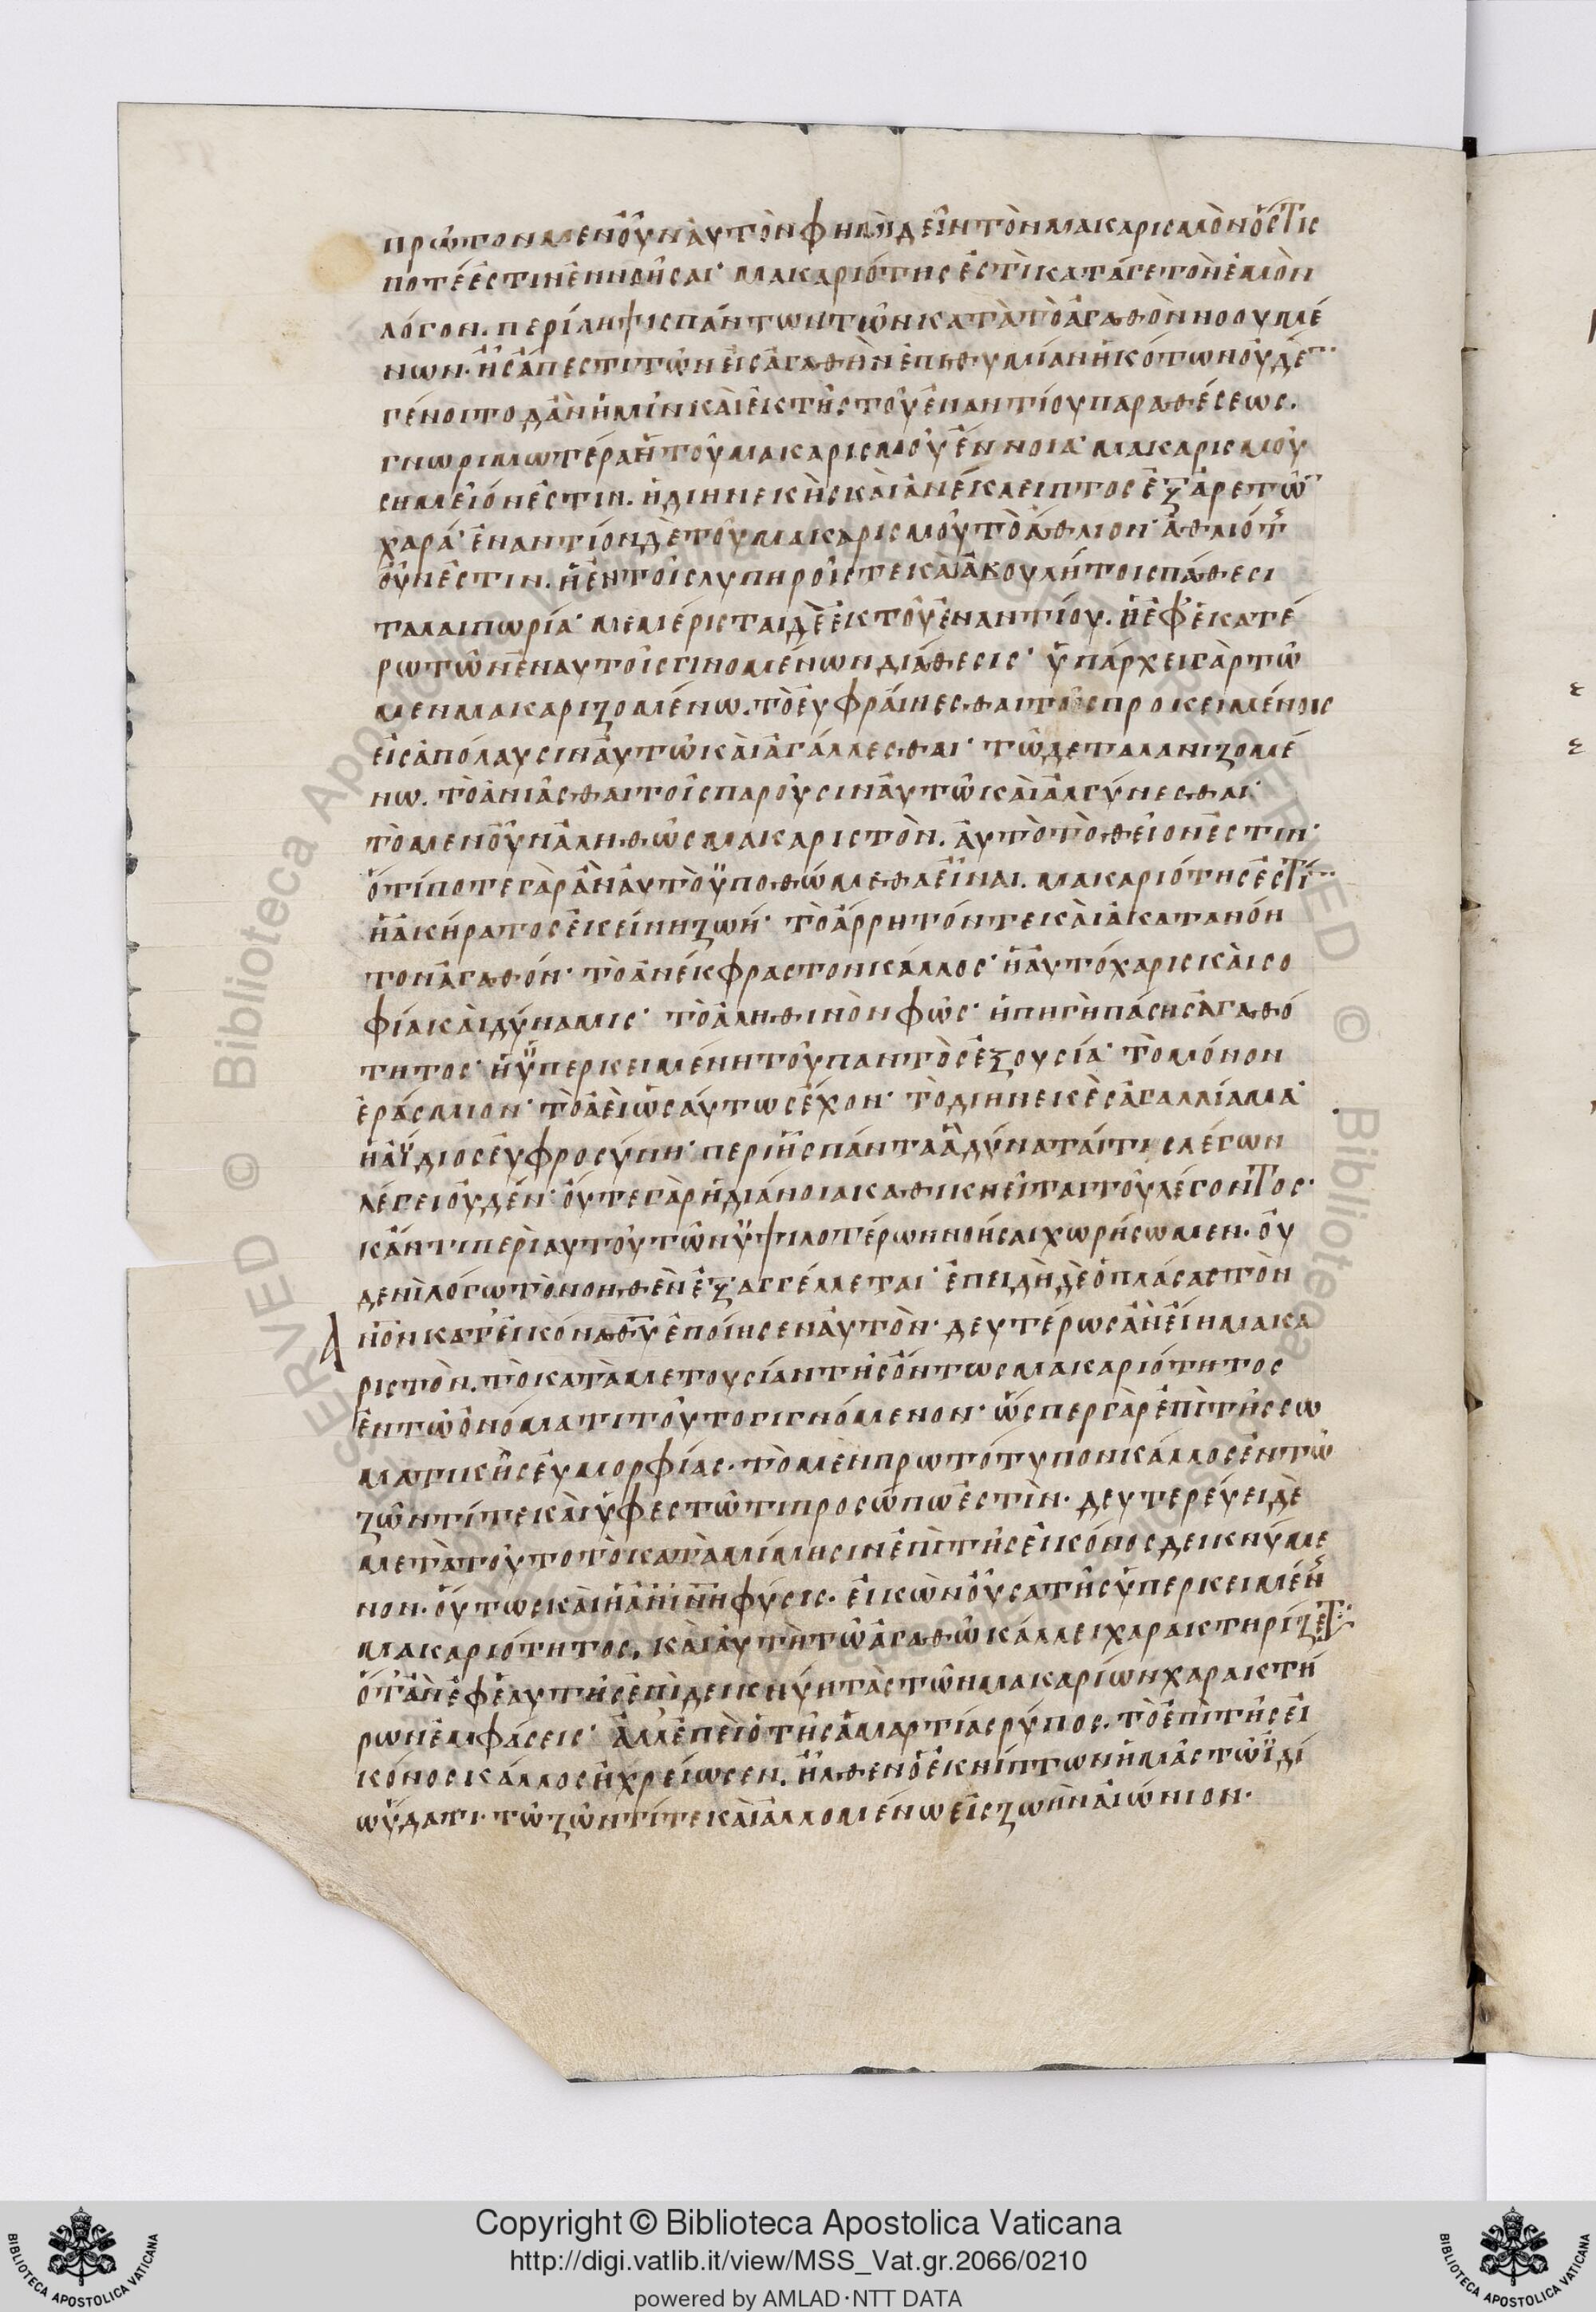 πρῶτον μὲν οὖν αὐτὸν φημὶ δεῖν τὸν μακαρισμὸν ὅστις
ποτέ ἐστιν ἐννοῆσαι· μακαριότης ἐστὶ κατά γε τὸν ἐμὸν
λόγον. περίληψις πάντων τῶν κατὰ τὸ ἀγαθὸν νοουμέ
νων· ἧς ἄπεστι τῶν εἰς ἀγαθὴν ἐπιθυμίαν ἡκότων οὐδέ̅·
γένοιτο δ' ἂν ἡμῖν καὶ ἐκ τῆς τοῦ ἐναντίου παραθέσεως.
γνωριμωτέρα ἡ τοῦ μακαρισμοῦ ἔννοια· μακαρισμοῦ
σημεῖόν ἐστιν. ἡ διηνεκὴς καὶ ἀνέκλειπτος ἐξ ἀρετῶ̅
χαρά· ἐναντίον δὲ τοῦ μακαρισμοῦ τὸ ἄθλιον· ἀθλιότ
οὖν ἐστιν. ἡ ἐν τοῖς λυπηροῖς τε καὶ ἀβουλήτοις πάθεσι
ταλαιπωρία· μεμέρισται δὲ ἐκ τοῦ ἐναντίου. ἡ ἐφ' ἑκατέ
ρω τῶν ἐν αυτοῖς γινομένων διάθεσις· ὑπάρχει γὰρ τῶ
μεν μακαριζομένω. τὸ εὐφραίνεσθαι τοῖς προκειμένοις
εἰς ἀπόλαυσιν αὐτῶ καὶ ἀγάλλεσθαι· τῶ δε ταλανιζομέ
νω. τὸ ἀνιᾶσθαι τοῖς παροῦσιν αὐτῶ καὶ ἀλγύνεσθαι·
τὸ μεν οὖν ἀληθῶς μακαριστὸν. αὐτὸ τὸ θεῖον ἐστιν·
ὅτί ποτε γὰρ ἂν αὐτὸ ὑποθώμεθα εἶναι. μακαριότης ἐστί̅
ἡ ἀκήρατος ἐκείνη ζωή· τὸ ἄρρητόν τε καὶ ἀκατανόη
τον ἀγαθόν· τὸ ἀνέκφραστον κάλλος· ἡ αὐτόχαρις καὶ σο
φία καὶ δύναμις· τὸ ἀληθινὸν φῶς· ἡ πηγὴ πάσης ἀγαθό
τητος· ἡ ὑπερκειμένη τοῦ παντὸς ἐξουσία· τὸ μόνον
ἐράσμιον· τὸ ἀεὶ ὡσαύτως ἔχον· τὸ διηνεκὲς ἀγαλλίαμα·
ἡ ἀΐδιος εὐφροσύνη· περι ἧς πάντα ἃ δύναταί τις λέγων
λέγει οὐδέν· οὔτε γὰρ ἡ διάνοια καθικνεῖται τοῦ λέγοντος·
κἄν τι περὶ αυτοῦ τῶν ὑψιλοτέρων νοῆσαι χωρήσωμεν. οὐ
δενὶ λόγω τὸ νοηθεν ἐξαγγέλλεται· ἐπειδὴ δὲ ὁ πλάσας τὸν
α̅ν̅ο̅ν̅ κατ' εἰκόνα θ̅υ̅ ἐποίησεν αὐτὸν· δευτέρως ἂν εἴη μακα
ριστὸν. τὸ κατὰ μετουσίαν τῆς ὄντως μακαριότητος
ἐν τῶ ὀνόματι τοῦτο γιγνόμενον· ὥσπερ γὰρ ἐπὶ τῆς σω
ματικῆς εὐμορφίας. τὸ μὲν πρωτότυπον κάλλος ἐν τῶ
ζῶντί τε καὶ ὑφεστῶτι προσώπω ἐστὶν· δευτερεύει δὲ
μετὰ τοῦτο τὸ κατὰ μίμησιν ἐπὶ τῆς εἰκόνος δεικνύμε
νον. οὕτως καὶ ἡ ἀ̅ν̅ι̅ν̅η̅ φύσις. εἰκὼν οὖσα τῆς ὑπερκειμένη
μακαριότητος, καὶ αὐτὴ τῶ ἀγαθῶ κάλλει χαρακτηρίζετ·
ὅτ' ἂν ἐφ' ἑαυτῆς ἐπὶδεικνύη τὰς τῶν μακαρίων χαρακτή
ρων ἐμφάσεις· ἀλλ' ἐπεὶ ὁ τῆς ἁμαρτίας ρύπος. τὸ ἐπὶ τῆς εἰ
κόνος κάλλος ἠχρείωσεν. ἦλθεν ὁ ἐκνίπτων ἡμᾶς τῶ ἰδί
ω ὕδατι· τῶ ζῶντί τε καὶ ἁλλομένω εἰς ζωὴν αἰώνιον·
Copyright © Biblioteca Apostolica Vaticana
http://digi.vatlib.it/view/MSS_Vat.gr.2066/0210
powered by AMLAD·NTT DATA
BIBLIOTECA APOSTOLICA VATICANA
BIBLIOTECA APOSTOLICA VATICANA